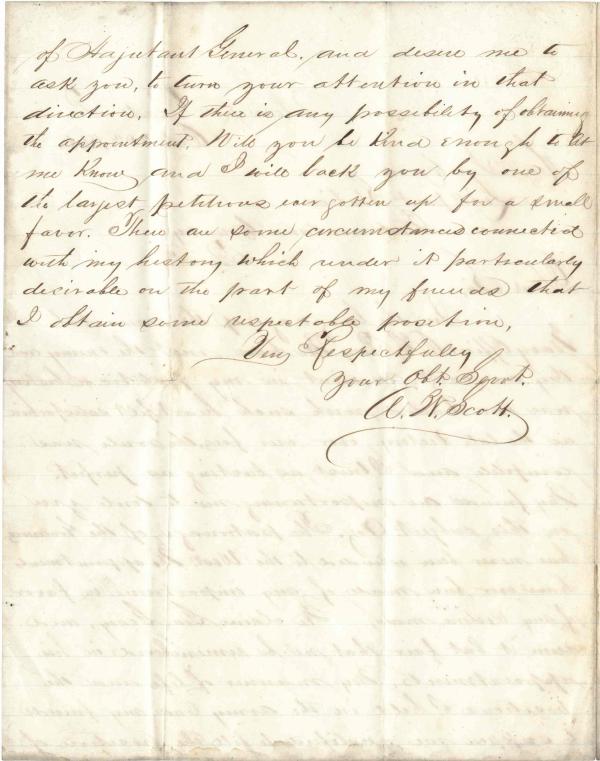 of Hajutant General. and desire me to
ask you, to turn your attention in that
direction. If there is any possibility of obtaining
the appointment. Will you be kind enough to let
me know and I will back you by one of
the largest petitions ever gotten up for a small
favor. There are some circumstances connected
with my history which under it particularly
desirable on the part of my friends that
I obtain some respectable position.
Very Respectfully
your Obt. Servt.
A. W. Scott.